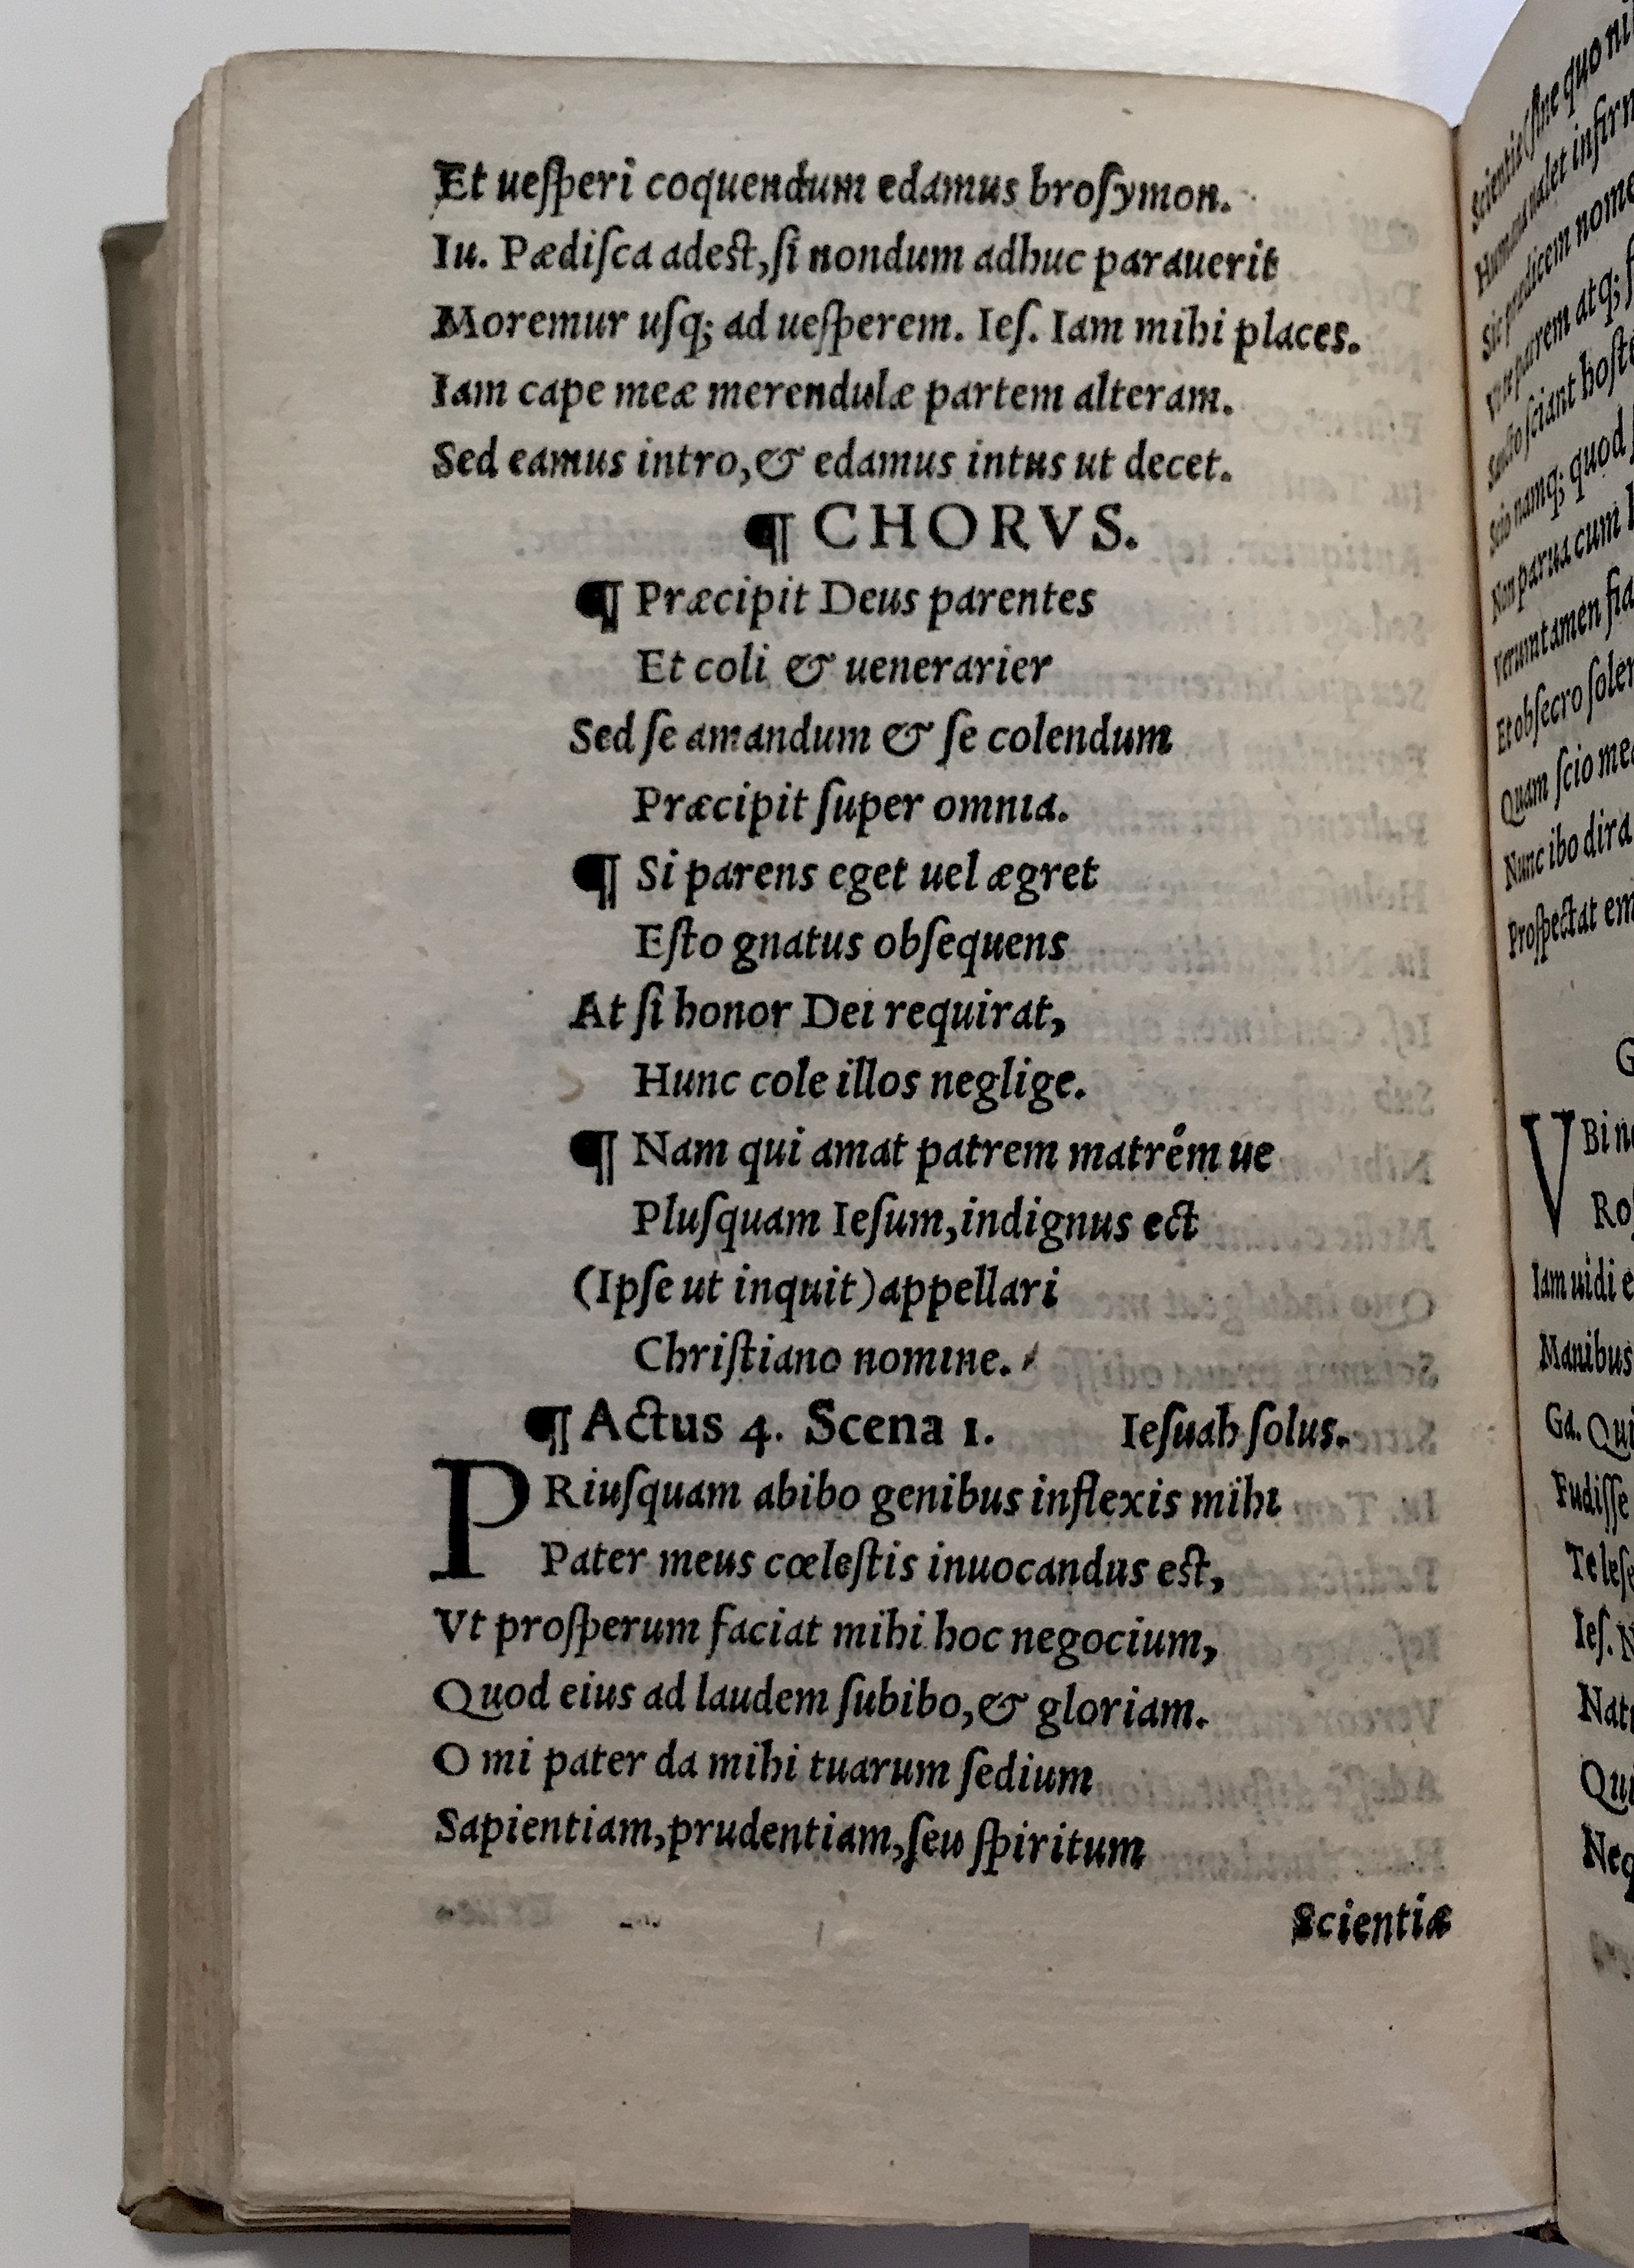 Et ueſperi coquendum edamus broſymon.
Iu. Pædiſca adest,ſi nondum adhuc parauerit
Moremur uſq; ad ueſperem. Ieſ. Iam mihi places.
Iam cape meæ merendulæ partem alteram.
Sed eamus intro,& edamus intus ut decet.
¶ CHORVS.
¶ Præcipit Deus parentes
Et coli & uenerarier
Sed ſe amandum & ſe colendum
Præcipit ſuper omnia.
¶ Si parens eget uel ægret
Eſto gnatus obſequens
At ſi honor Dei requirat,
Hunc cole illos neglige.
¶ Nam qui amat patrem matrem ue
Pluſquam Ieſum,indignus ect
(Ipſe ut inquit)appellari
Chriſtiano nomine.
¶ Actus 4. Scena 1. Ieſuah ſolus.
PRiuſquam abibo genibus inflexis mihi
Pater meus cœleſtis inuocandus est,
Vt proſperum faciat mihi hoc negocium,
Quod eius ad laudem ſubibo,& gloriam.
O mi pater da mihi tuarum ſedium
Sapientiam,prudentiam,ſeu ſpiritum
Scientiæ
Scientiæ(ſine quo ni
Humana ualet infirm
Sic prædicem nome
Vt te patrem atq; ſ
ſciant hoſte
Scio namq; quod
Non parua cum
Veruntamen fia
Et obſecro ſoler
Quam ſcio me
Nunc ibo dira
Proſpectat em
G
VBi n
Roſ
Iam uidi e
Manibus
Ga. Qui
Fudiſſe
Teleſe
Ieſ. N
Nat
Qui
Neq